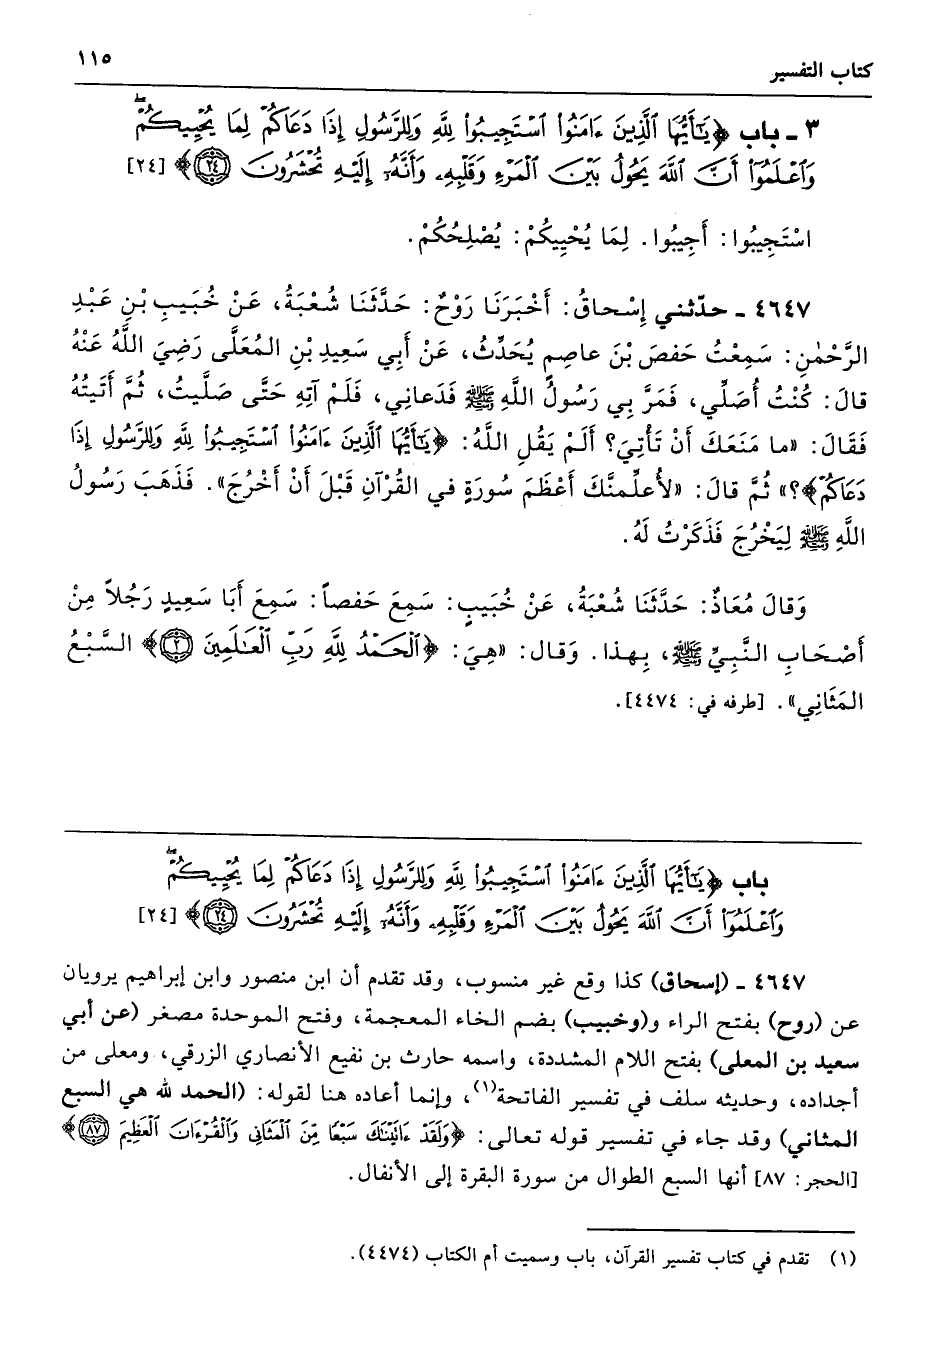 ١١٥
كتاب التفسير
٣ ـ باب ﴿يَٰٓأَيُّهَا ٱلَّذِينَ ءَامَنُوا۟ ٱسْتَجِيبُوا۟ لِلَّهِ وَلِلرَّسُولِ إِذَا دَعَاكُمْ لِمَا يُحْيِيكُمْ ۖ
وَٱعْلَمُوٓا۟ أَنَّ ٱللَّهَ يَحُولُ بَيْنَ ٱلْمَرْءِ وَقَلْبِهِۦ وَأَنَّهُۥٓ إِلَيْهِ تُحْشَرُونَ ۝٢٤﴾ [٢٤]
اسْتَجِيبُوا: أَجِيبُوا. لِمَا يُحْيِيكُمْ: يُصْلِحُكُمْ.
٤٦٤٧ ـ حدّثني إِسْحاقُ: أَخْبَرَنَا رَوْحٌ: حَدَّثَنَا شُعْبَةُ، عَنْ خُبَيبِ بْنِ عَبْدِ
الرَّحْمٰنِ: سَمِعْتُ حَفصَ بْنَ عاصِمٍ يُحَدِّثُ، عَنْ أَبِي سَعِيدِ بْنِ المُعَلَّى رَضِيَ اللَّهُ عَنْهُ
قالَ: كُنْتُ أُصَلِّي، فَمَرَّ بِي رَسُولُ اللَّهِ ﷺ فَدَعانِي، فَلَمْ آتِهِ حَتَّى صَلَّيتُ، ثُمَّ أَتَيتُهُ
فَقَالَ: «ما مَنَعَكَ أَنْ تَأْتِيَ؟ أَلَمْ يَقُلِ اللَّهُ: ﴿يَٰٓأَيُّهَا ٱلَّذِينَ ءَامَنُوا۟ ٱسْتَجِيبُوا۟ لِلَّهِ وَلِلرَّسُولِ إِذَا
دَعَاكُمْ﴾؟» ثُمَّ قالَ: «لأُعلِّمنَّكَ أَعْظَمَ سُورَةٍ في القُرْآنِ قَبْلَ أَنْ أَخْرُجَ». فَذَهَبَ رَسُولُ
اللَّهِ ﷺ لِيَخْرُجَ فَذَكَرْتُ لَهُ.
وَقالَ مُعَاذٌ: حَدَّثَنَا شُعْبَةُ، عَنْ خُبَيبٍ: سَمِعَ حَفصاً: سَمِعَ أَبَا سَعِيدٍ رَجُلاً مِنْ
أَصْحَابِ النَّبِيِّ ﷺ، بِهذا. وَقال: «هِيَ: ﴿ٱلْحَمْدُ لِلَّهِ رَبِّ ٱلْعَٰلَمِينَ ۝٢﴾ السَّبْعُ
المَثَانِي». [طرفه في: ٤٤٧٤].
باب ﴿يَٰٓأَيُّهَا ٱلَّذِينَ ءَامَنُوا۟ ٱسْتَجِيبُوا۟ لِلَّهِ وَلِلرَّسُولِ إِذَا دَعَاكُمْ لِمَا يُحْيِيكُمْ ۖ
وَٱعْلَمُوٓا۟ أَنَّ ٱللَّهَ يَحُولُ بَيْنَ ٱلْمَرْءِ وَقَلْبِهِۦ وَأَنَّهُۥٓ إِلَيْهِ تُحْشَرُونَ ۝٢٤﴾ [٢٤]
٤٦٤٧ ـ (إسحاق) كذا وقع غير منسوب، وقد تقدم أن ابن منصور وابن إبراهيم يرويان
عن (روح) بفتح الراء و(وخبيب) بضم الخاء المعجمة، وفتح الموحدة مصغر (عن أبي
سعيد بن المعلى) بفتح اللام المشددة، واسمه حارث بن نفيع الأنصاري الزرقي، ومعلى من
أجداده، وحديثه سلف في تفسير الفاتحة(١)، وإنما أعاده هنا لقوله: (الحمد لله هي السبع
المثاني) وقد جاء في تفسير قوله تعالى: ﴿وَلَقَدْ ءَاتَيْنَٰكَ سَبْعًا مِّنَ ٱلْمَثَانِى وَٱلْقُرْءَانَ ٱلْعَظِيمَ ۝٨٧﴾
[الحجر: ٨٧] أنها السبع الطوال من سورة البقرة إلى الأنفال.
(١) تقدم في كتاب تفسير القرآن، باب وسميت أم الكتاب (٤٤٧٤).